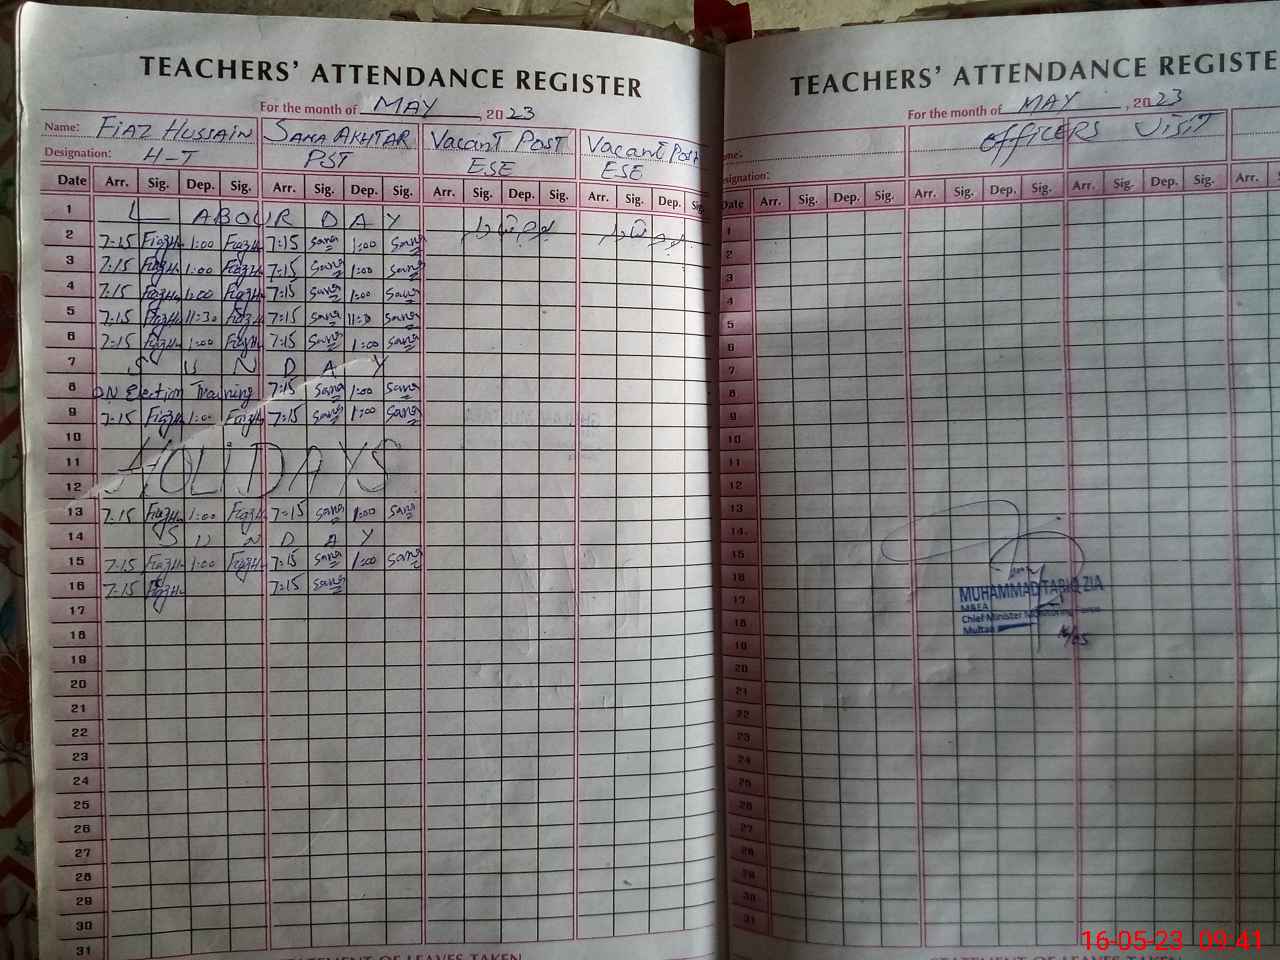 TEACHERS' ATTENDANCE REGISTER
For the month of MAY, 2023
Name: FIAZ HUSSAIN SANA AKHTAR Vacant Post Vacant Post
Designation: H-T PST ESE ESE
Date Arr. Sig. Dep. Sig. Arr. Sig. Dep. Sig. Arr. Sig. Dep. Sig. Arr. Sig. Dep. Sig.
1 LABOUR DAY
2 7-15 FiazH 1:00 FiazH 7:15 Sana 1:00 Sana
3 7-15 FiazH 1:00 FiazH 7:15 Sana 1:00 Sana
4 7-15 FiazH 1:00 FiazH 7:15 Sana 1:00 Sana
5 7-15 FiazH 11:30 FiazH 7:15 Sana Sana
6 7-15 FiazH 1:00 FiazH 7:15 Sana 1:00 Sana
7 SUNDAY
8 ON Election Training 7:15 Sana 1:00 Sana
9 7-15 FiazH 1:00 FiazH 7:15 Sana 1:00 Sana
10
11 HOLIDAYS
12
13 7-15 FiazH 1:00 FiazH 7:15 Sana 1:00 Sana
14 SUNDAY
15 7-15 FiazH 1:00 FiazH 7:15 Sana 1:00 Sana
16 7-15 FiazH 7:15 Sana
17
18
19
20
21
22
23
24
25
26
27
28
29
30
31
STATEMENT OF LEAVES TAKEN
TEACHERS' ATTENDANCE REGISTE
For the month of MAY, 2023
me: OFFICERS VISIT
signation:
Date Arr. Sig. Dep. Sig. Arr. Sig. Dep. Sig. Arr. Sig. Dep. Sig. Arr.
1
2
3
4
5
6
7
8
9
10
11
12
13
14
15
16
17
18
19
20
21
22
23
24
25
26
27
28
29
30
31
MUHAMMAD TARIQ ZIA
M&EA
Chief Minister Monitoring Force
Multan
16/05
STATEMENT OF LEAVES TAKEN
16-05-23 09:41